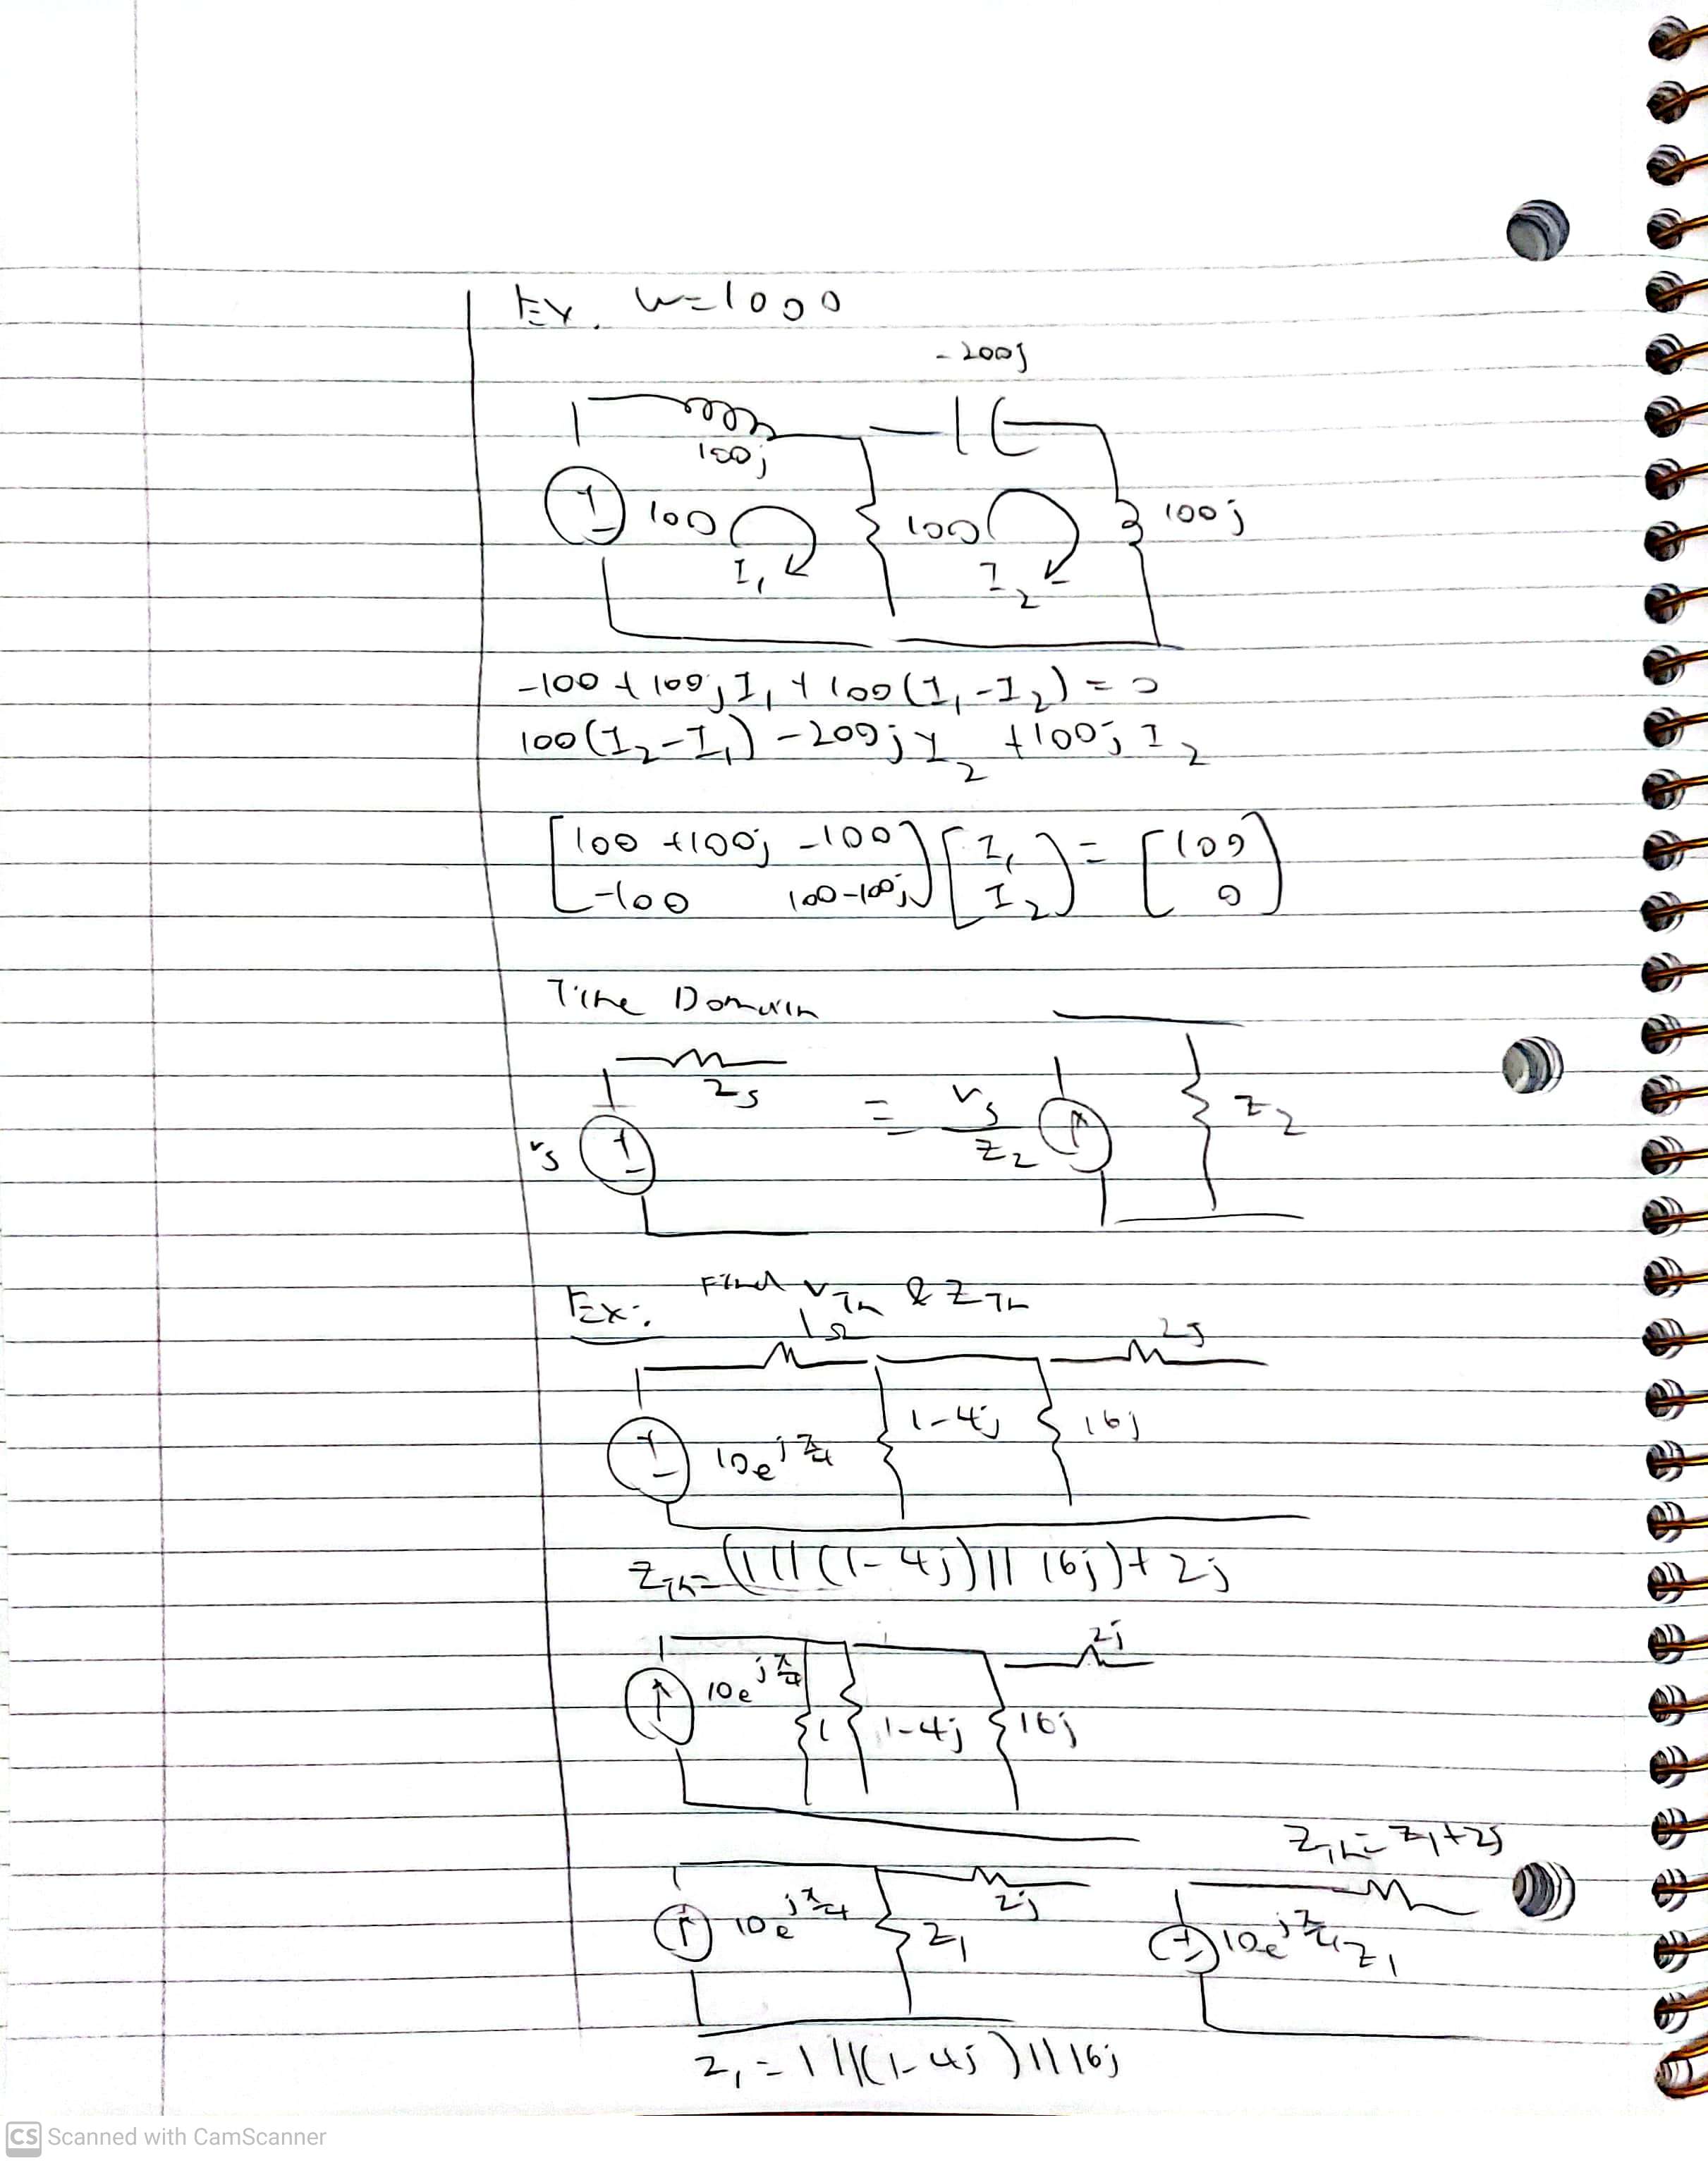 Ex. w=1000
-200j
100j
100
100
100j
I₁
I₂
-100 + 100j I₁ + 100(I₁-I₂) = 0
100(I₂-I₁) - 200j I₂ + 100j I₂
[100 +100j -100] [I₁] = [100]
[-100 100-100j] [I₂] [0]
Time Domain
Zs
Vs
= Vs/Z₂
Z₂
Ex: Find VTh & ZTh
1Ω
2j
10e^{jπ/4}
1-4j
16j
ZTh = (1||(1-4j)||16j)+2j
2j
10e^{jπ/4}
1
1-4j
16j
ZTh = Z₁+2j
10e^{jπ/4}
2j
Z₁
10e^{jπ/4}Z₁
Z₁ = 1||(1-4j)||16j
CS Scanned with CamScanner